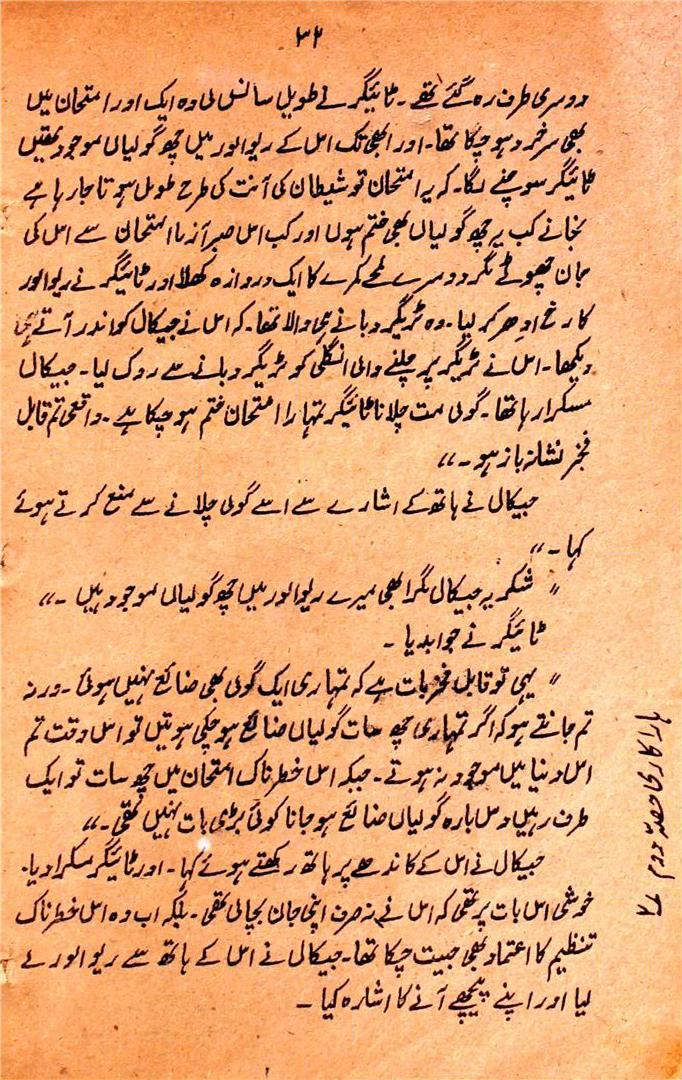 ۳۲
دوسری طرف رہ گئے تھے۔ ٹائیگر نے طویل سانس لی وہ ایک اور امتحان میں
بھی سرخرو ہو چکا تھا۔ اور ابھی تک اس کے ریوالور میں چھ گولیاں موجود تھیں
ٹائیگر سوچنے لگا۔ کہ یہ امتحان تو شیطان کی آنت کی طرح طویل ہوتا جا رہا ہے
نجانے کب یہ چھ گولیاں بھی ختم ہوں اور کب اس صبر آزما امتحان سے اس کی
جان چھوٹے مگر دوسرے لمحے کمرے کا ایک دروازہ کھلا اور ٹائیگر نے ریوالور
کا رخ ادھر کر لیا۔ وہ ٹریگر دبانے ہی والا تھا۔ کہ اس نے جیکال کو اندر آتے ہی
دیکھا۔ اس نے ٹریگر پر چلنے والی انگلی کو ٹریگر دبانے سے روک لیا۔ جیکال
مسکرا رہا تھا۔ گولی مت چلانا ٹائیگر تمہارا امتحان ختم ہو چکا ہے۔ واقعی تم قابل
فخر نشانہ باز ہو۔،،
جیکال نے ہاتھ کے اشارے سے اسے گولی چلانے سے منع کرتے ہوئے
کہا۔،،
،، شکریہ جیکال مگر ابھی میرے ریوالور میں چھ گولیاں موجود ہیں۔،،
ٹائیگر نے جواب دیا۔
،، یہی تو قابل فخر بات ہے کہ تمہاری ایک گولی بھی ضائع نہیں ہوئی۔ ورنہ
تم جانتے ہو کہ اگر تمہاری چھ سات گولیاں ضائع ہو چکی ہوتیں تو اس وقت تم
اس دنیا میں موجود نہ ہوتے۔ جبکہ اس خطرناک امتحان میں چھ سات تو ایک
طرف رہیں دس بارہ گولیاں ضائع ہو جانا کوئی بڑی بات نہیں تھی۔،،
جیکال نے اس کے کاندھے پر ہاتھ رکھتے ہوئے کہا۔ اور ٹائیگر مسکرا دیا۔
خوشی اس بات پر تھی کہ اس نے نہ صرف اپنی جان بچالی تھی۔ بلکہ اب وہ اس خطرناک
تنظیم کا اعتماد بھی جیت چکا تھا۔ جیکال نے اس کے ہاتھ سے ریوالور لے
لیا اور اپنے پیچھے آنے کا اشارہ کیا۔
ہاراکاری حصہ دوم